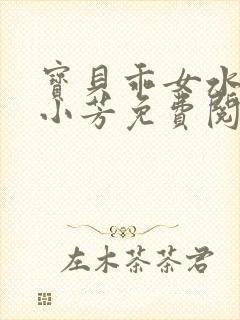 寶貝乖女水
小芳免費閱
左木茶茶君